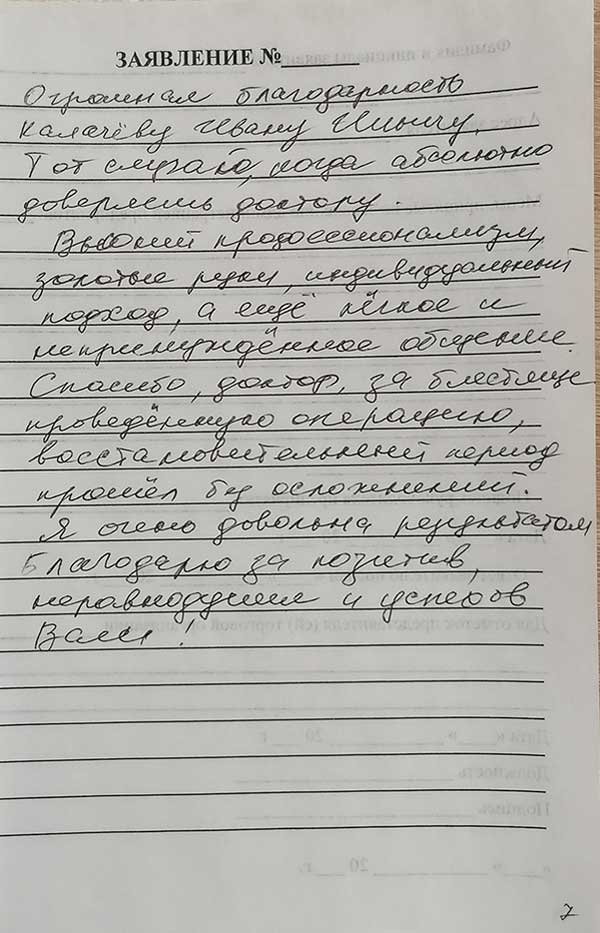 ЗАЯВЛЕНИЕ №________
Огромная благодарность
Калачёву Ивану Ильичу.
Тот случай, когда абсолютно
доверяешь доктору.
Высокий профессионализм,
золотые руки, индивидуальный
подход, а ещё лёгкое и
непринуждённое общение.
Спасибо, доктор, за блестяще
проведённую операцию,
восстановительный период
прошёл без осложнений.
Я очень довольна результатом
Благодарю за позитив,
неравнодушие и успехов
Вам!
7